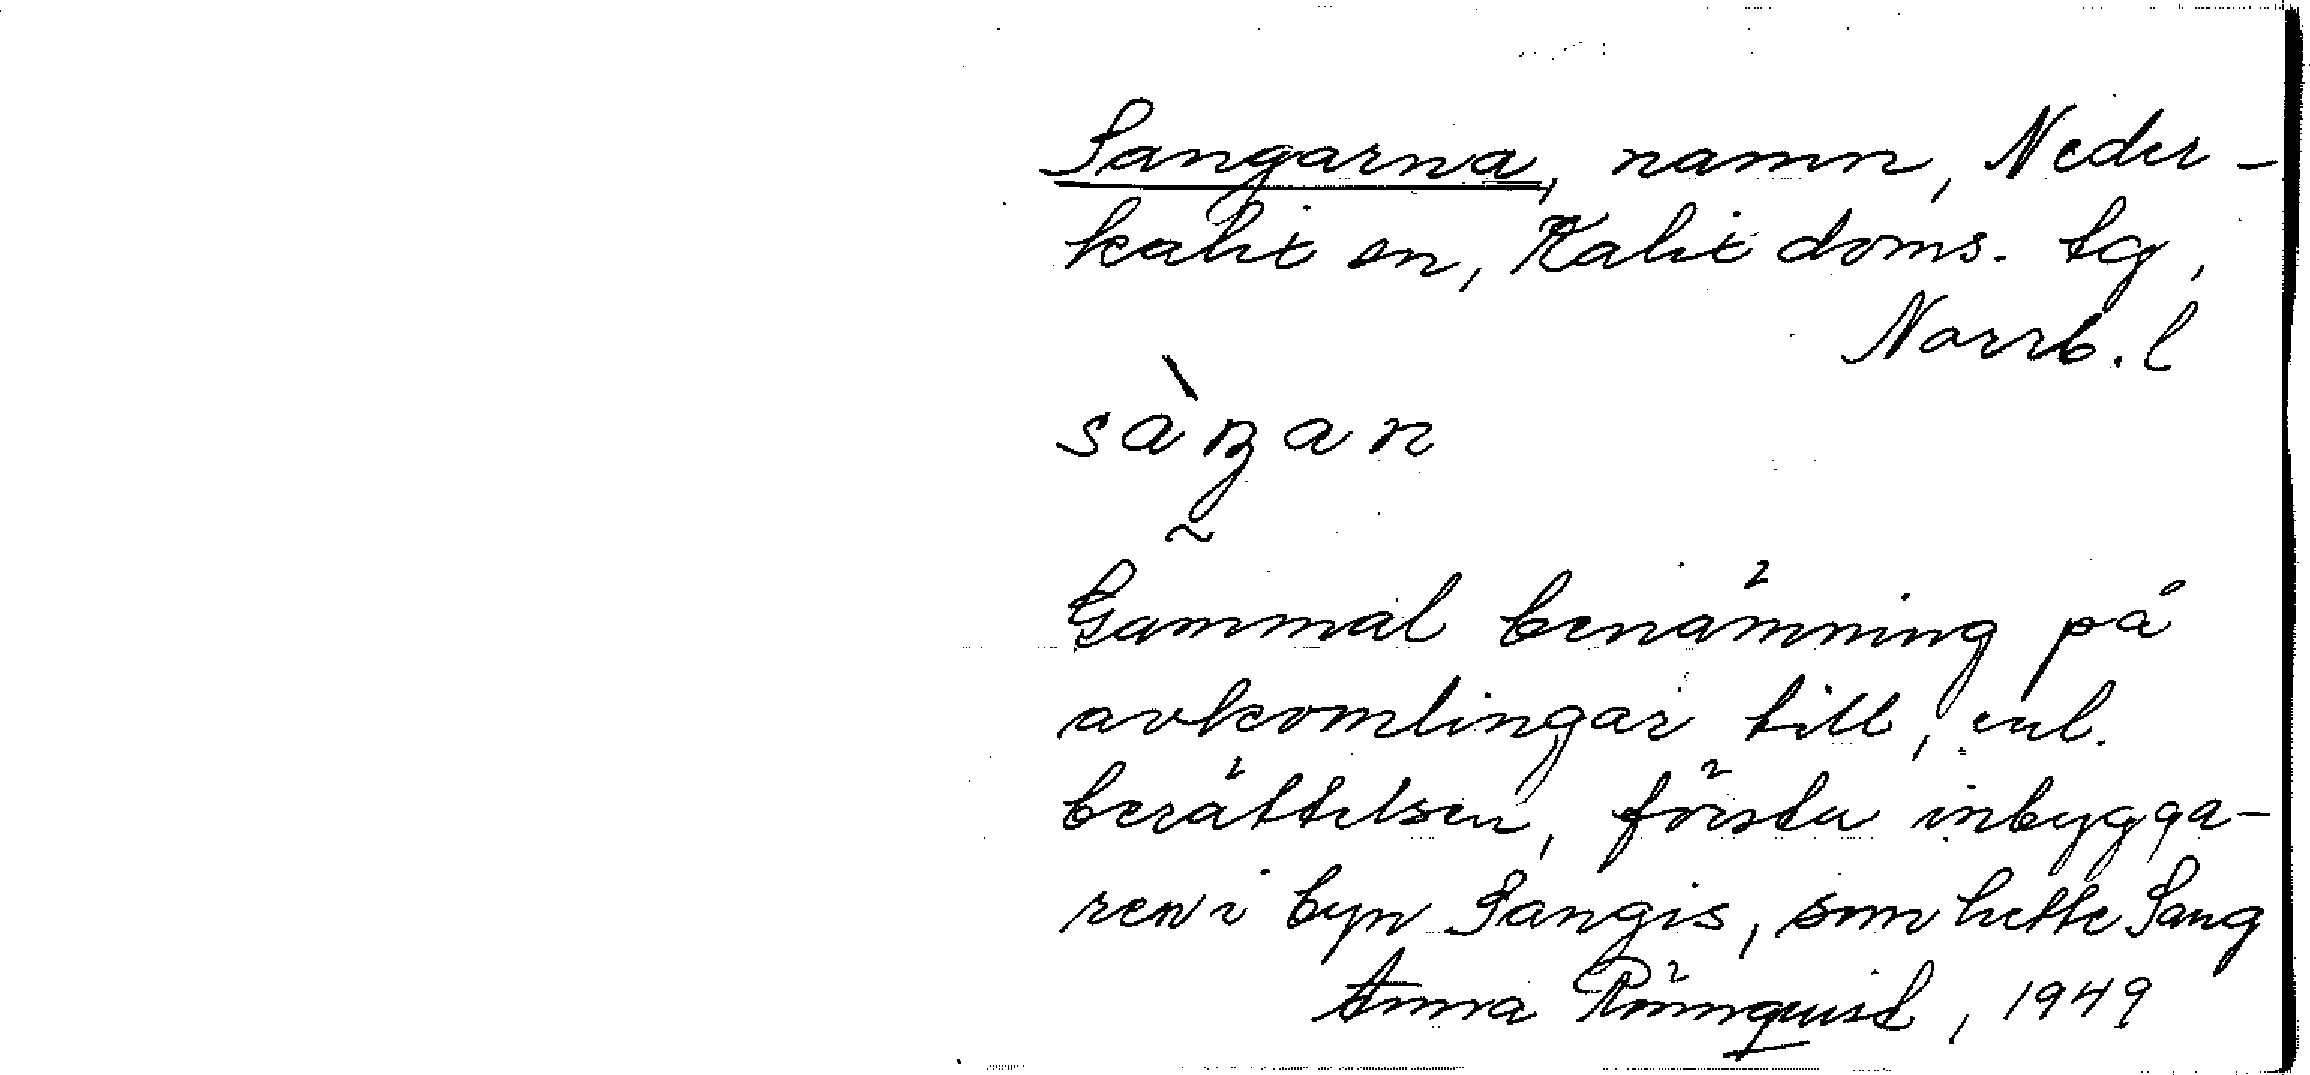 Sangarna, namn, Neder-
kalix sn, Kalix doms. tg,
Norrb. l
sàŋan
Gammal benämning på
avkomlingar till, enl.
berättelsen, första inbygga-
ren i byn Sangis, som hette Sang
Anna Rönnquist, 1949